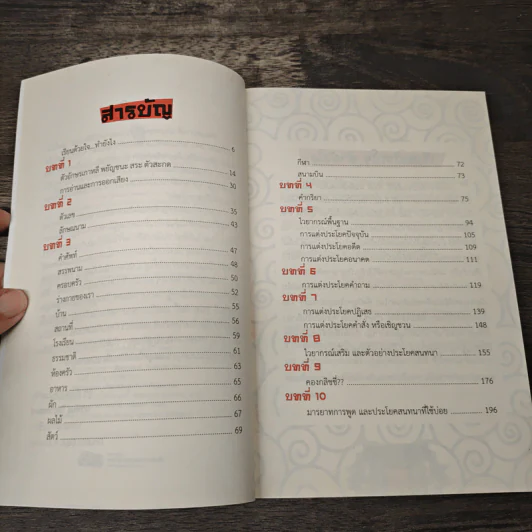 สารบัญ
เรียนด้วยใจ...ทำยังไง 6
บทที่ 1
ตัวอักษรเกาหลี พยัญชนะ สระ ตัวสะกด 14
การอ่านและการออกเสียง 30
บทที่ 2
ตัวเลข 35
ลักษณนาม 43
บทที่ 3
คำศัพท์ 47
สรรพนาม 48
ครอบครัว 50
ร่างกายของเรา 52
บ้าน 55
สถานที่ 56
โรงเรียน 59
ธรรมชาติ 61
ห้องครัว 63
อาหาร 65
ผัก 66
ผลไม้ 67
สัตว์ 69
กีฬา 72
สนามบิน 73
บทที่ 4
คำกริยา 75
บทที่ 5
ไวยากรณ์พื้นฐาน 94
การแต่งประโยคปัจจุบัน 105
การแต่งประโยคอดีต 109
การแต่งประโยคอนาคต 111
บทที่ 6
การแต่งประโยคคำถาม 119
บทที่ 7
การแต่งประโยคปฏิเสธ 139
การแต่งประโยคคำสั่ง หรือเชิญชวน 148
บทที่ 8
ไวยากรณ์เสริม และตัวอย่างประโยคสนทนา 155
บทที่ 9
คองกลิชชี่?? 176
บทที่ 10
มารยาทการพูด และประโยคสนทนาที่ใช้บ่อย 196